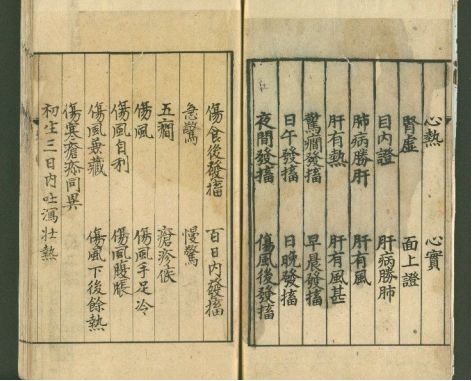 心熱 心實
腎虛 面上證
目内證 肝病勝肺
肺病勝肝 肝有風
肝有熱 肝有風甚
驚癇發搐 早晨發搐
日午發搐 日晚發搐
夜間發搐 傷風後發搐
傷食後發搐 百日内發搐
急驚 慢驚
五癇 瘡疹候
傷風 傷風手足冷
傷風自利 傷風腹脹
傷風兼藏 傷風下後餘熱
傷寒瘡疹同異
初生三日内吐瀉壯熱